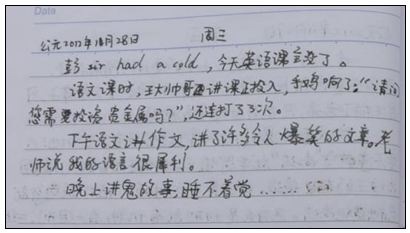 Data
公元2012年11月28日 周三
彭 sir had a cold，今天英语课全没了。
语文课时，王大帅哥讲课正投入，手机响了："请问
您需要投资贵金属吗?"，还连打了3次。
下午语文讲作文，讲了许多令人爆笑的文章。老
师说我的语言很犀利。
晚上讲鬼故事，睡不着觉………